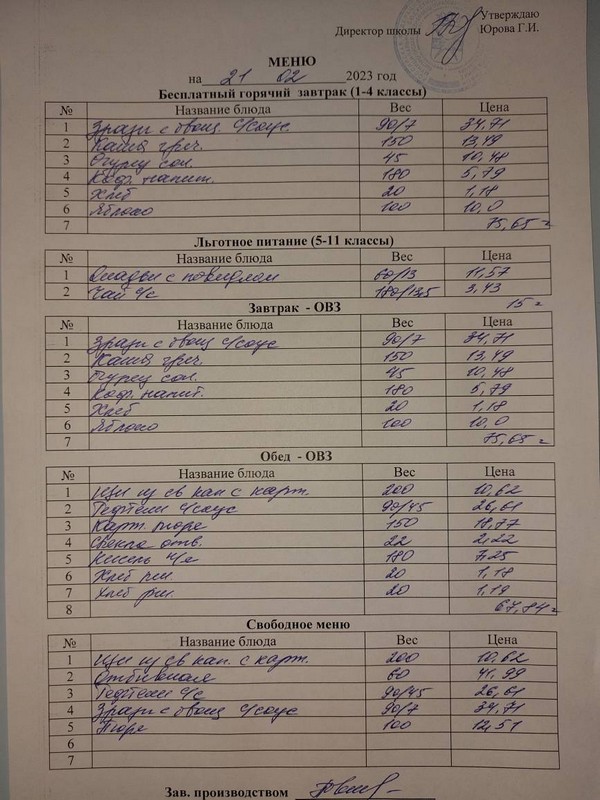 Утверждаю
Директор школы Юрова Г.И.
МЕНЮ
на 21 02 2023 год
Бесплатный горячий завтрак (1-4 классы)
№ Название блюда Вес Цена
1 Зразы с овощ с/соус 90/7 34,71
2 Каша греч. 150 13,49
3 Огурец сол. 45 10,48
4 Коф. напит. 180 5,79
5 Хлеб 20 1,18
6 Яблоко 100 10,0
7 75,65
Льготное питание (5-11 классы)
№ Название блюда Вес Цена
1 Оладьи с повидлом 60/13 11,57
2 Чай с/с 180/13,5 3,43
15
Завтрак - ОВЗ
№ Название блюда Вес Цена
1 Зразы с овощ с/соус 90/7 34,71
2 Каша греч. 150 13,49
3 Огурец сол. 45 10,48
4 Коф. напит. 180 5,79
5 Хлеб 20 1,18
6 Яблоко 100 10,0
7 75,65
Обед - ОВЗ
№ Название блюда Вес Цена
1 Щи из св кап с карт. 200 10,62
2 Тефтели с/соус 90/45 26,61
3 Карт. пюре 150 18,77
4 Свекла отв. 22 2,22
5 Кисель 180 7,25
6 Хлеб 20 1,18
7 Хлеб 20 1,19
8 67,84
Свободное меню
№ Название блюда Вес Цена
1 Щи из св кап. с карт. 200 10,62
2 Отбивная 60 41,99
3 Тефтели с/с 90/45 26,61
4 Зразы с овощ с/соус 90/7 34,71
5 Пюре 100 12,51
6
7
Зав. производством